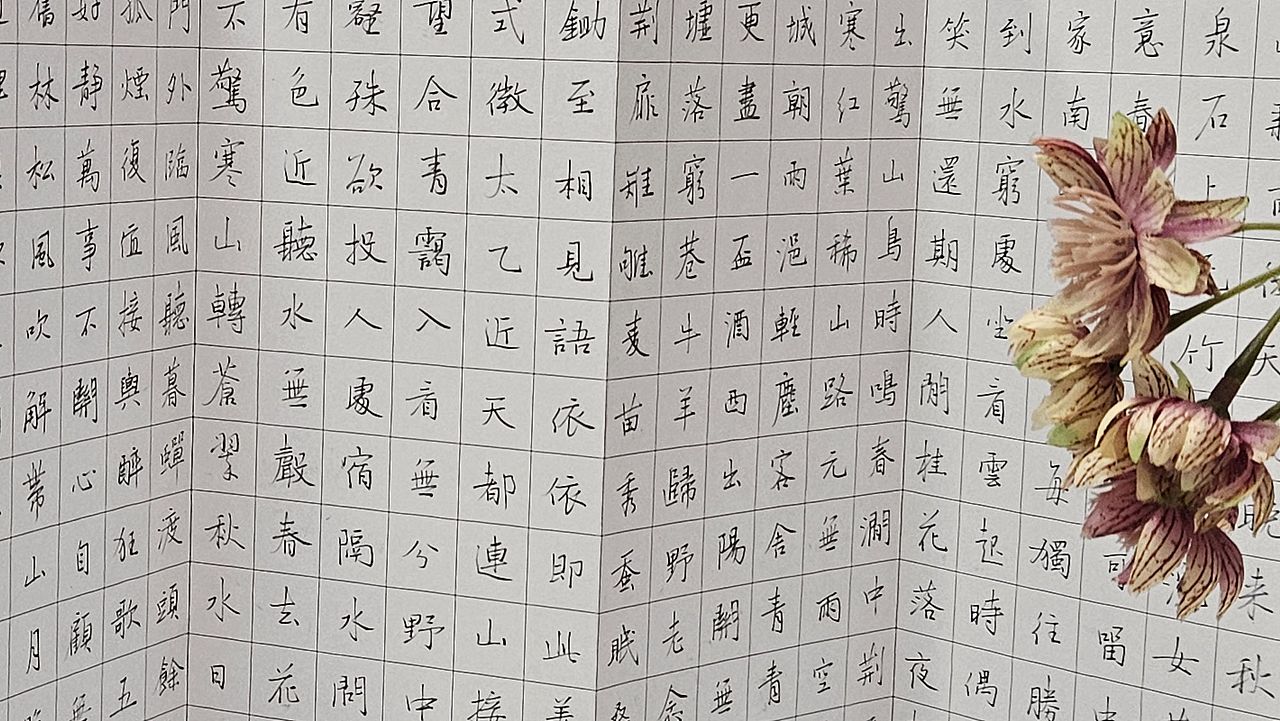 天晚来秋
泉石上竹女
意春可留
家南每獨往勝
到水窮處坐看雲起時偶
笑無還期人閒桂花落夜
出驚山鳥時鳴春澗中荆
寒紅葉稀山路元無雨空
城朝雨浥輕塵客舍青青
更盡一盃酒西出陽關無
墟落窮巷牛羊歸野老念
荆扉雉雊麥苗秀蚕眠桑
鋤至相見語依依即此羡
式微太乙近天都連山接
望合青靄入看無分野中
壑殊欲投人處宿隔水問
有色近聽水無聲春去花
不驚寒山轉蒼翠秋水日
門外臨風聽暮蟬渡頭餘
孤煙復值接輿醉狂歌五
好靜萬事不關心自顧無
舊林松風吹解帶山月